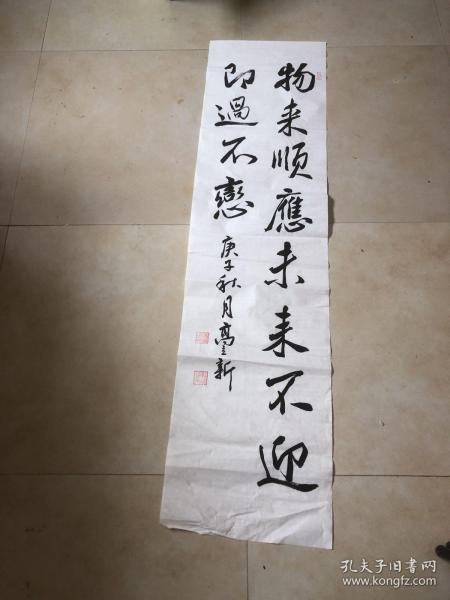 物来順應未来不迎
即過不戀
庚子秋月高至新
孔夫子旧书网
www.kongfz.com